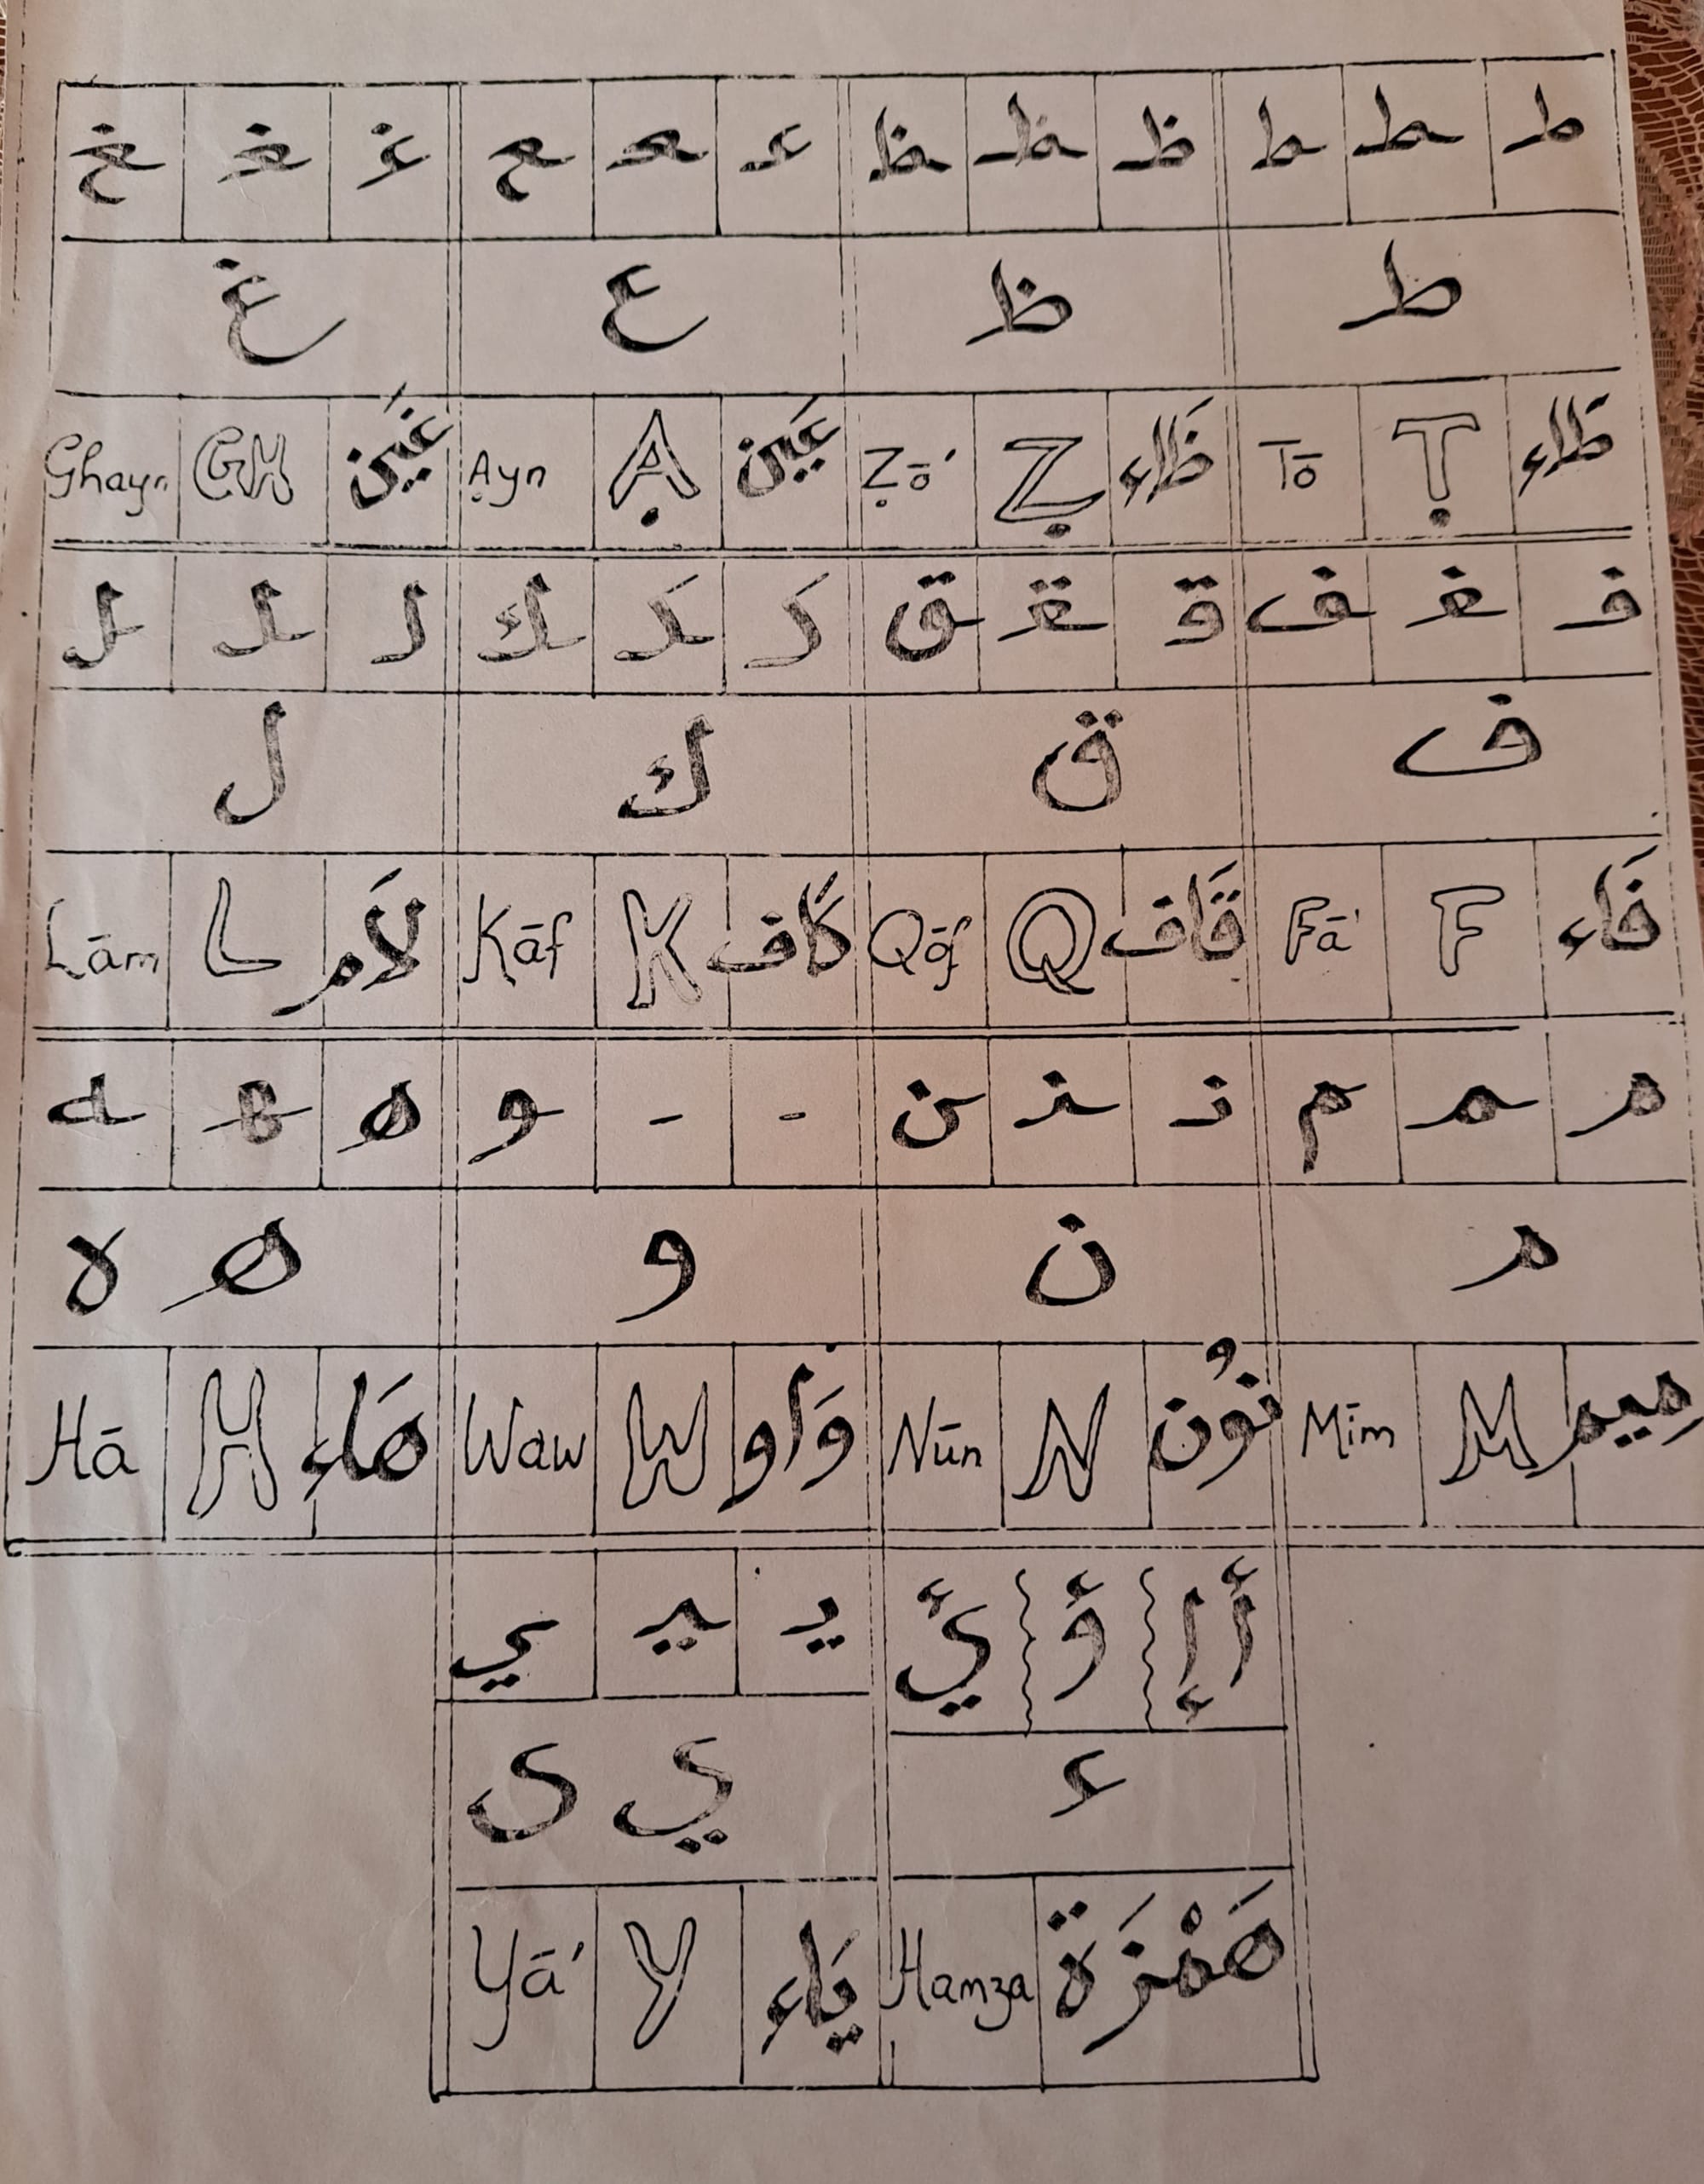 ط ـطـ ط ظ ـظـ ظ عـ ـعـ ـع غـ ـغـ ـغ
ط ظ ع غ
طَاء Ṭ Ṭō ظَاء Ẓ Ẓō' عَيْن Ạ Ạyn غَيْن GH Ghayn
فـ ـفـ ـف قـ ـقـ ـق كـ ـكـ ـك لـ ـلـ ـل
ف ق ك ل
فَاء F Fā' قَاف Q Qōf كَاف K Kāf لاَم L Lām
مـ ـمـ ـم نـ ـنـ ـن - - ـو هـ ـهـ ـه
م ن و ه ە
مِيم M Mīm نُون N Nūn وَاو W Waw هَاء H Hā
أ إ ؤ ئ يـ ـيـ ـي
ء ي ى
هَمْزَة Hamza يَاء Y Yā'